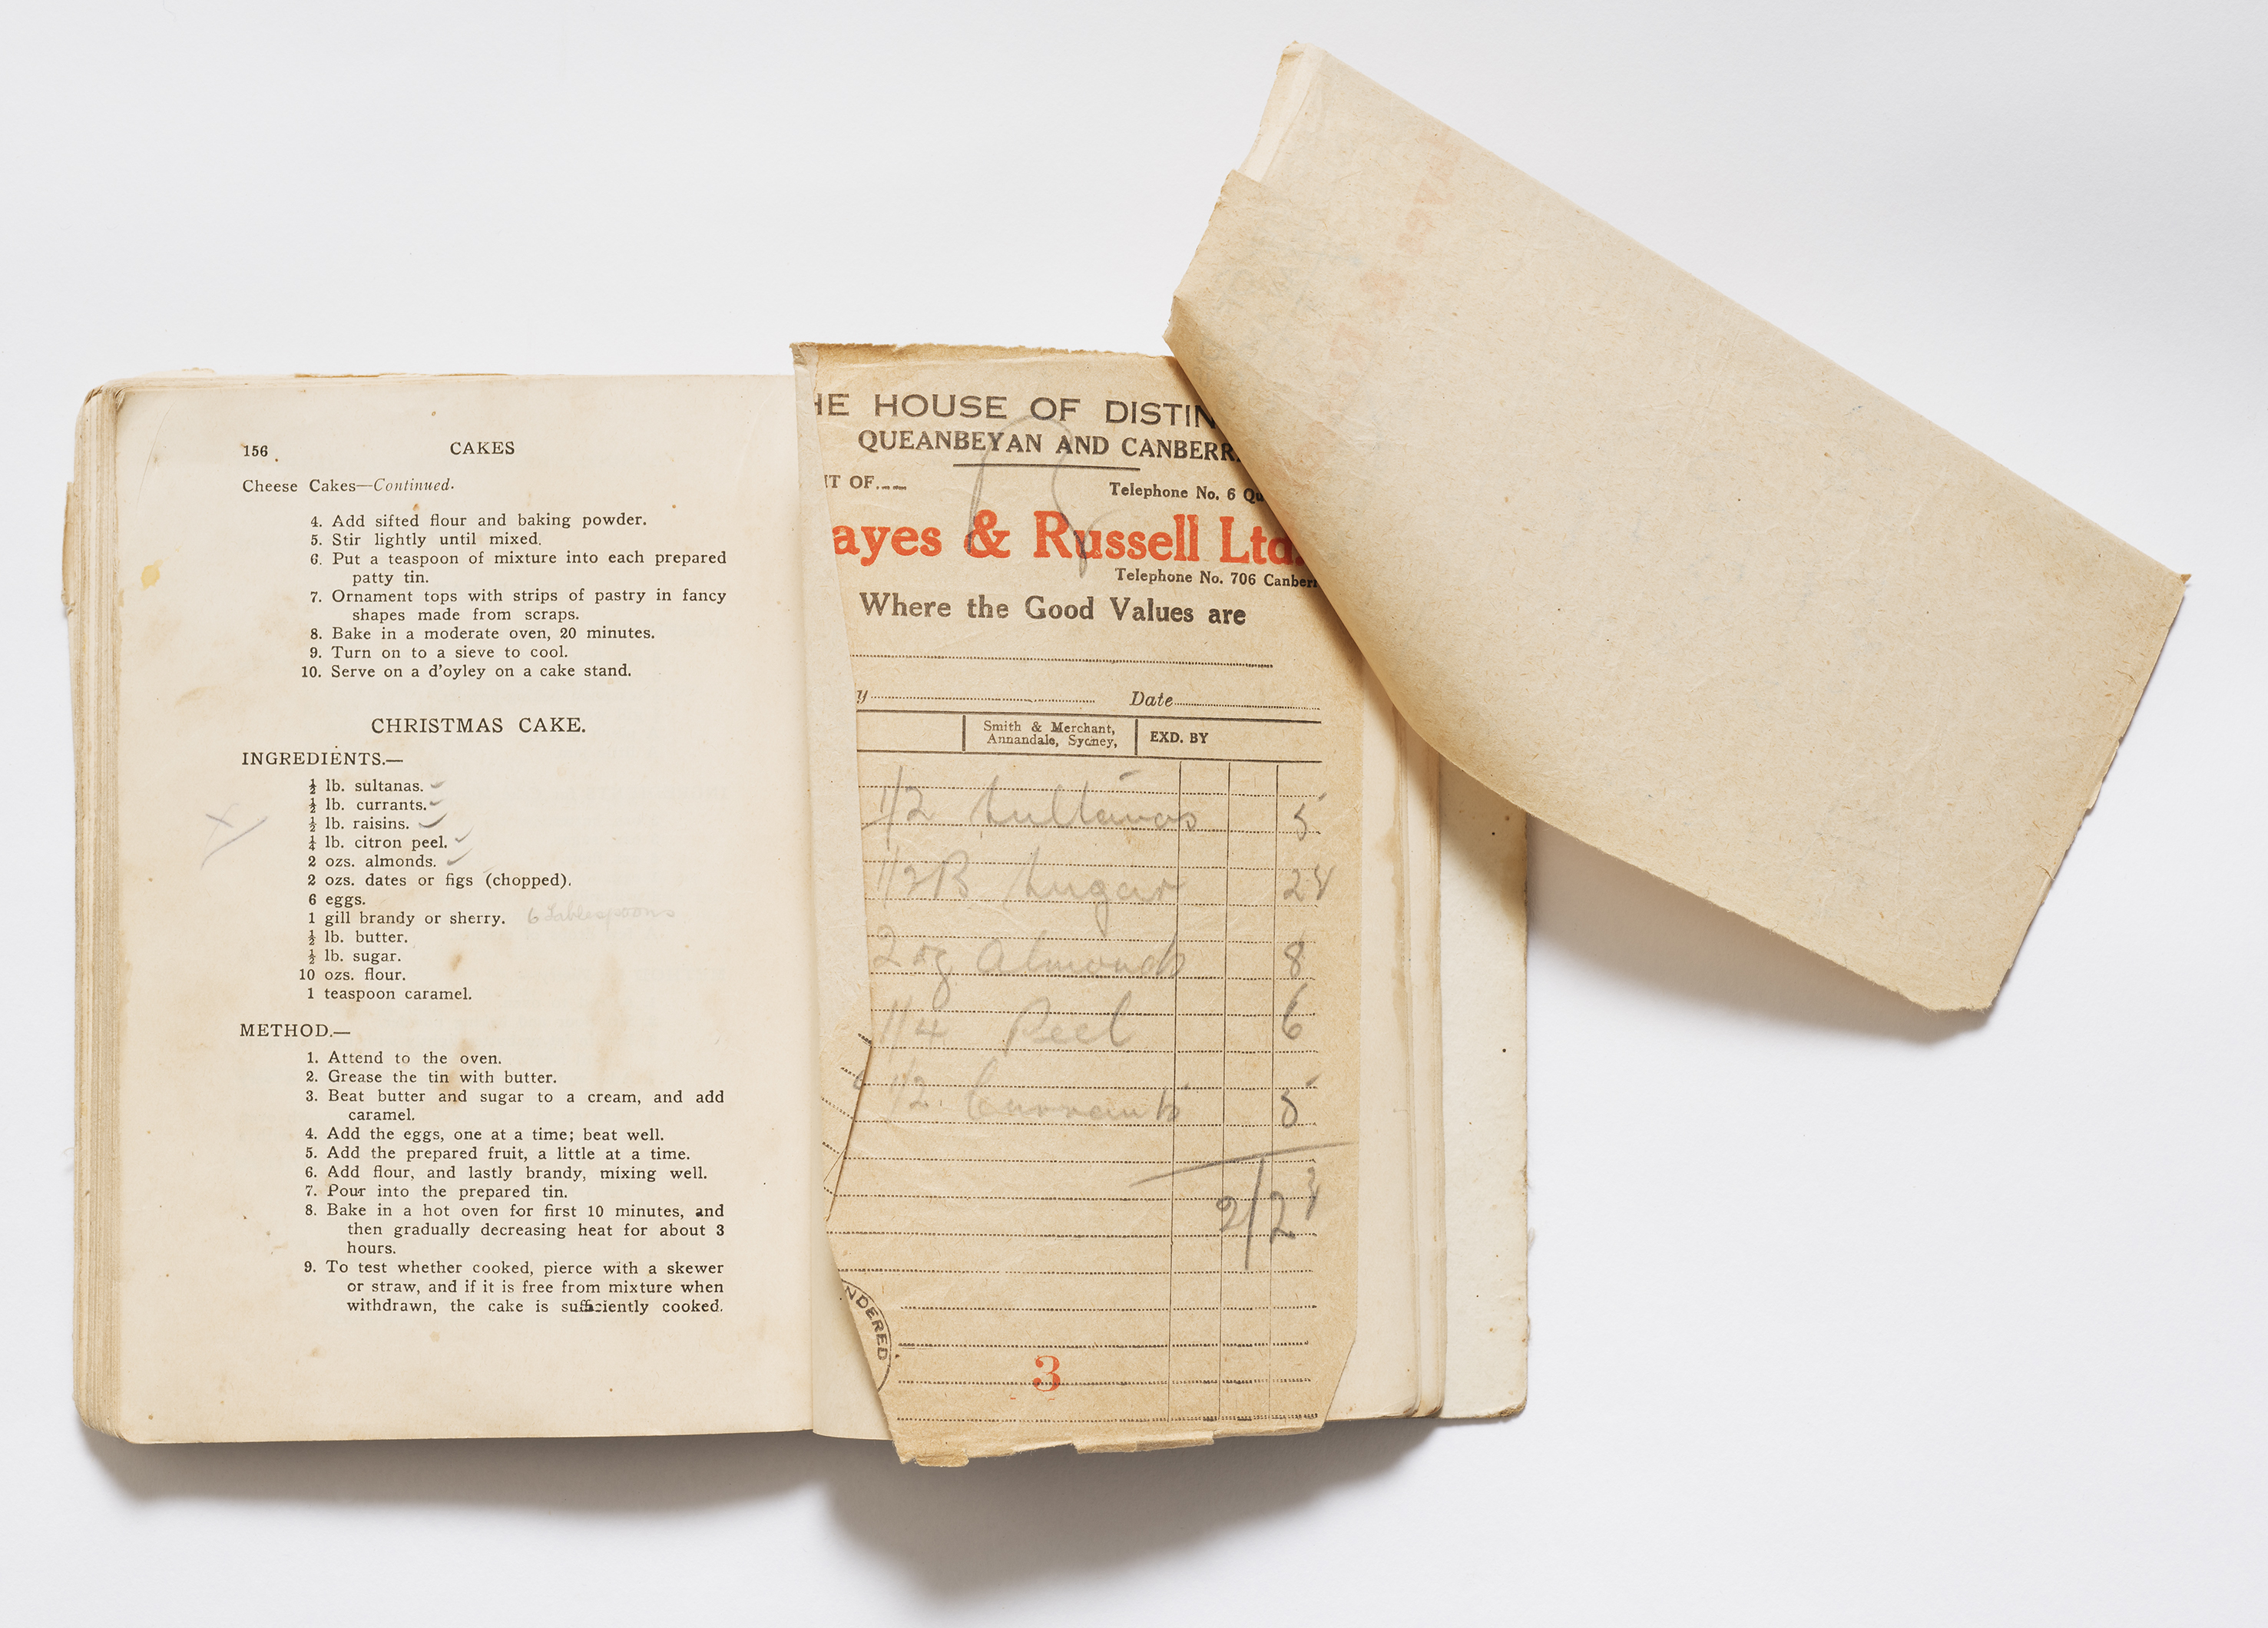 156 CAKES
Cheese Cakes—Continued.
4. Add sifted flour and baking powder.
5. Stir lightly until mixed.
6. Put a teaspoon of mixture into each prepared
patty tin.
7. Ornament tops with strips of pastry in fancy
shapes made from scraps.
8. Bake in a moderate oven, 20 minutes.
9. Turn on to a sieve to cool.
10. Serve on a d'oyley on a cake stand.
CHRISTMAS CAKE.
INGREDIENTS.—
½ lb. sultanas.
½ lb. currants.
½ lb. raisins.
¼ lb. citron peel.
2 ozs. almonds.
2 ozs. dates or figs (chopped).
6 eggs.
1 gill brandy or sherry. 6 Tablespoons
½ lb. butter.
½ lb. sugar.
10 ozs. flour.
1 teaspoon caramel.
METHOD.—
1. Attend to the oven.
2. Grease the tin with butter.
3. Beat butter and sugar to a cream, and add
caramel.
4. Add the eggs, one at a time; beat well.
5. Add the prepared fruit, a little at a time.
6. Add flour, and lastly brandy, mixing well.
7. Pour into the prepared tin.
8. Bake in a hot oven for first 10 minutes, and
then gradually decreasing heat for about 3
hours.
9. To test whether cooked, pierce with a skewer
or straw, and if it is free from mixture when
withdrawn, the cake is sufficiently cooked.
HE HOUSE OF DISTIN
QUEANBEYAN AND CANBERR
IT OF
Telephone No. 6 Qu
ayes & Russell Ltd.
Telephone No. 706 Canberr
Where the Good Values are
y Date
Smith & Merchant,
Annandale, Sydney,
EXD. BY
1/2 Sultanas 5
1/2 B Sugar
2 oz Almonds 8
1/4 Peel 6
1/2 Currants 5
2/2
NDERED
3